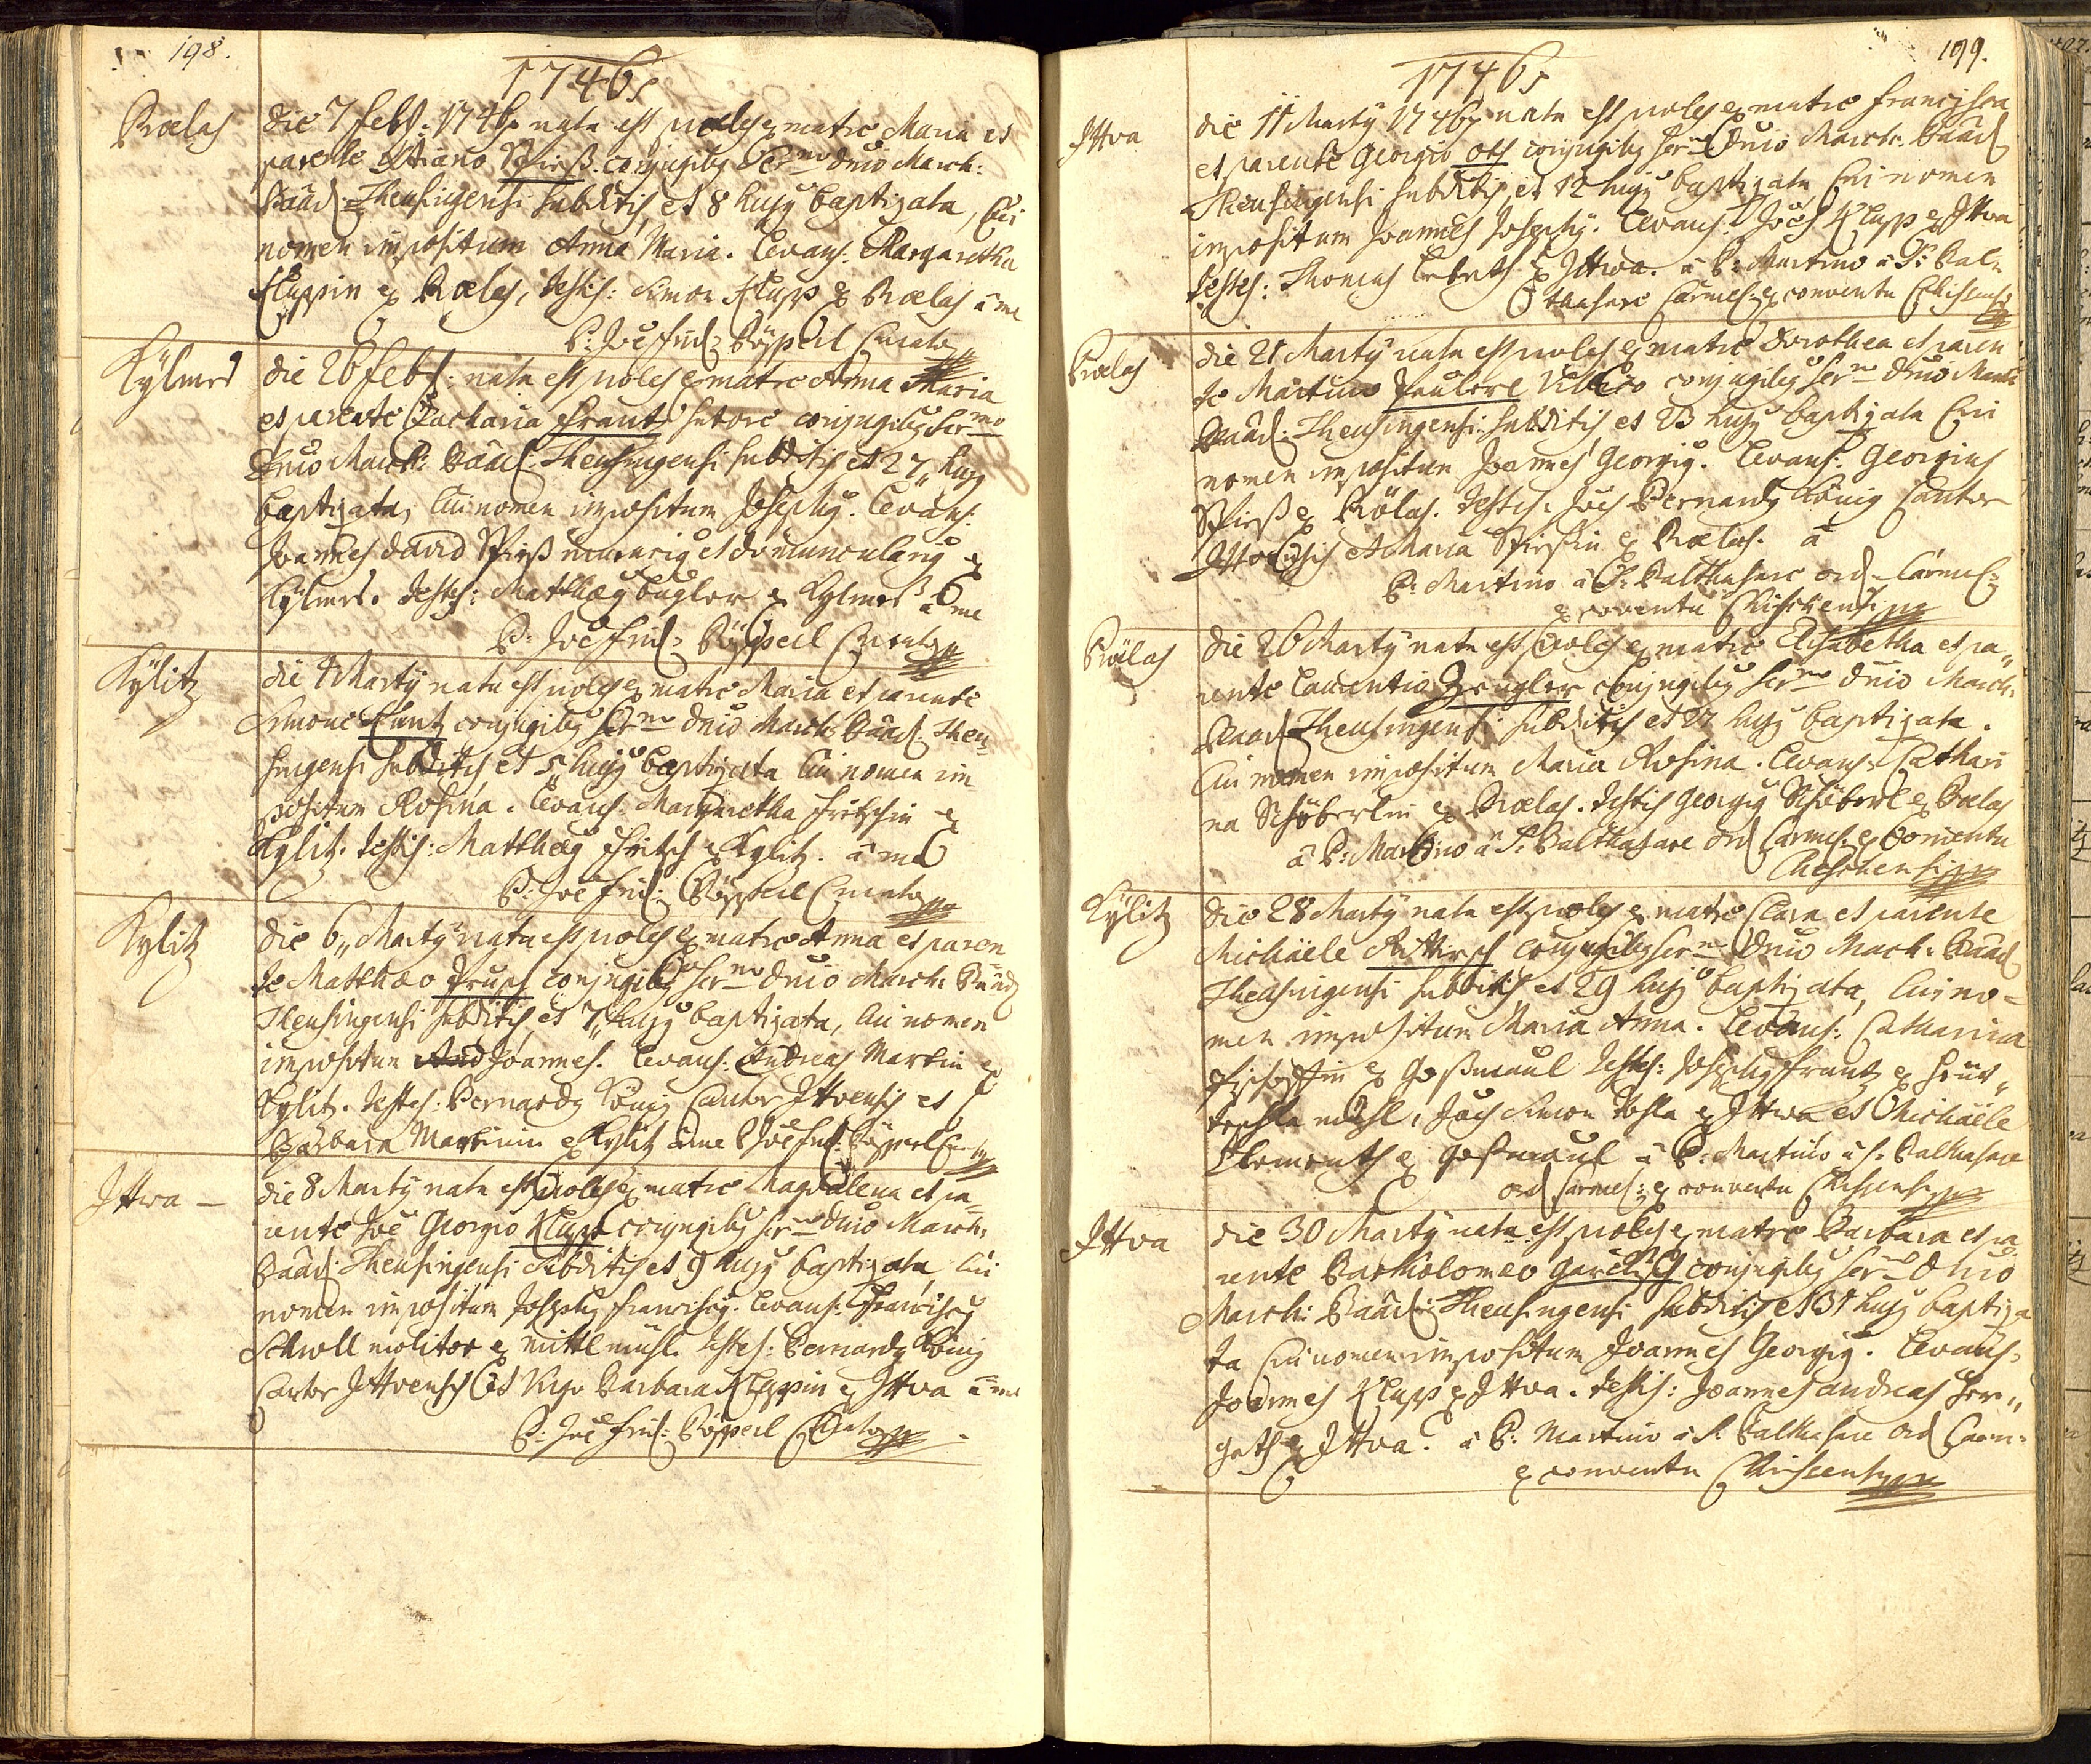 198.
1746
Prölas die 7 Feb: 1746 nata est proles ex matre Maria et
parente Adriano Spieß conjugibus Sermo Dnio March:
Baad: Theusingensi subditis et 8 hujus baptizata, Cui
nomen impositum Anna Maria. Levans: Margaretha
Cluppin ex Prölas, testis: Simon Klupp ex Prölas à me
P: Joe Frid: Pöpperl Curato
Kylmes die 26 Feb: nata est proles ex matre Anna Maria
et parente Zacharia Frantz sutore conjugibus Sermo
Dnio March: Baad: Theusingensi subditis et 27 hujus
baptizata, Cui nomen impositum Josephus. Levans:
Joannes David Spieß murarius et domuncularius ex
Kylmes. testes: Matthæus Bugler ex Kylmes à me
P: Joe Frid: Pöpperl Curato
Kylitz die 4 Marty nata est proles ex matre Maria et parente
Simone Cuntz conjugibus Sermo Dnio March: Baad: Theu-
singensi subditis et 5 hujus baptizata Cui nomen im
positum Rosina. Levans: Margaretha Fritschin ex
Kylitz. testis: Matthæus Fritsch ex Kylitz. à me
P: Joe Frid: Pöpperl Curato
Kylitz die 6 Marty nata est proles ex matre Anna et paren
te Matthæo Prusch conjugibus Sermo Dnio March: Baad
Theusingensi subditis et 7 hujus baptizata, Cui nomen
impositum Joannes. Levans: Andreas Martin ex
Kylitz. testes: Bernardus König Cantor Ittvensis et
Barbara Martinin ex Kylitz à me P Joe Frid: Pöpperl
Ittwa - die 8 Marty nata est proles ex matre Magdalena et pa
rente Joe Georgio Klupp conjugibus Sermo Dnio March:
Baad: Theusingensi subditis et 9 hujus baptizata Cui
nomen impositum Josephus Franciscus. Levans: Franciscus
Schroll molitor ex mittlmühl. testes: Bernardus König
Cantor Ittvensis et Virgo Barbara Kluppin ex Ittva à me
P: Joe Frid: Pöpperl Curato
199.
1746
Ittva die 11 Marty 1746 nata est proles ex matre Francisca
et parente Georgio Ott conjugibus Sermo Dnio March: Baad
Theusingensi subditis et 12 hujus baptizata Cui nomen
impositum Joannes Josephus. Levans: Joes Klupp ex Ittva
testes: Thomas ex Ittwa. à P: Martino à S: Bal-
thasare Carmel: ex conventu Chiesensi
Prölas die 21 Marty nata est proles ex matre Dorothea et paren
te Martino Villico conjugibus Sermo Dnio March
Baad: Theusingensi: subditis et 23 hujus baptizata Cui
nomen impositum Joannes Georgius. Levans: Georgius
Spieß ex Prölas. testes: Joes Bernardus König Cantor
Ittvensis et Maria Spießin ex Prölas. à
P: Martino à S: Balthasare ord Carmel:
ex conventu Chieschensi
Prölas die 26 Marty nata est proles ex matre Elisabetha et pa-
rente Laurentio Zeugler conjugibus Sermo Dnio March:
Baad: Theusingensi subditis et 27 hujus baptizata.
Cui nomen impositum Maria Rosina. Levans: Cathari
na Schöberlin ex Prölas. testis Georgius Schöberl ex Prölas
à P: Martino à S: Balthasare ord Carmel: ex Conventu
Chieschensi
Kylitz die 28 Marty nata est proles ex matre Clara et parente
Michaele conjugibus Sermo Dnio March: Baad
Theusingensi subditis et 29 hujus baptizata, Cui no-
men impositum Maria Anna. Levans: Catharina
ex Goßmaul testes: Josephus Frantz ex
mühl, Joes Simon ex Ittwa et Michaele
Clementh ex Gosmaul à P: Martino à S: Balthasare
ord Carmel: ex conventu Chiesensi
Ittva die 30 Marty nata est proles ex matre Barbara et pa
rente Bartholomeo conjugibus Sermo Dnio
March: Baad: Theusingensi subditis et 31 hujus baptiza
ta Cui nomen impositum Joannes Georgius. Levans:
Joannes Klupp ex Ittva. testis: Joannes Andreas Her-
geth ex Ittva. à P: Martino à S: Balthasare ord Carm:
ex conventu Chiescensi